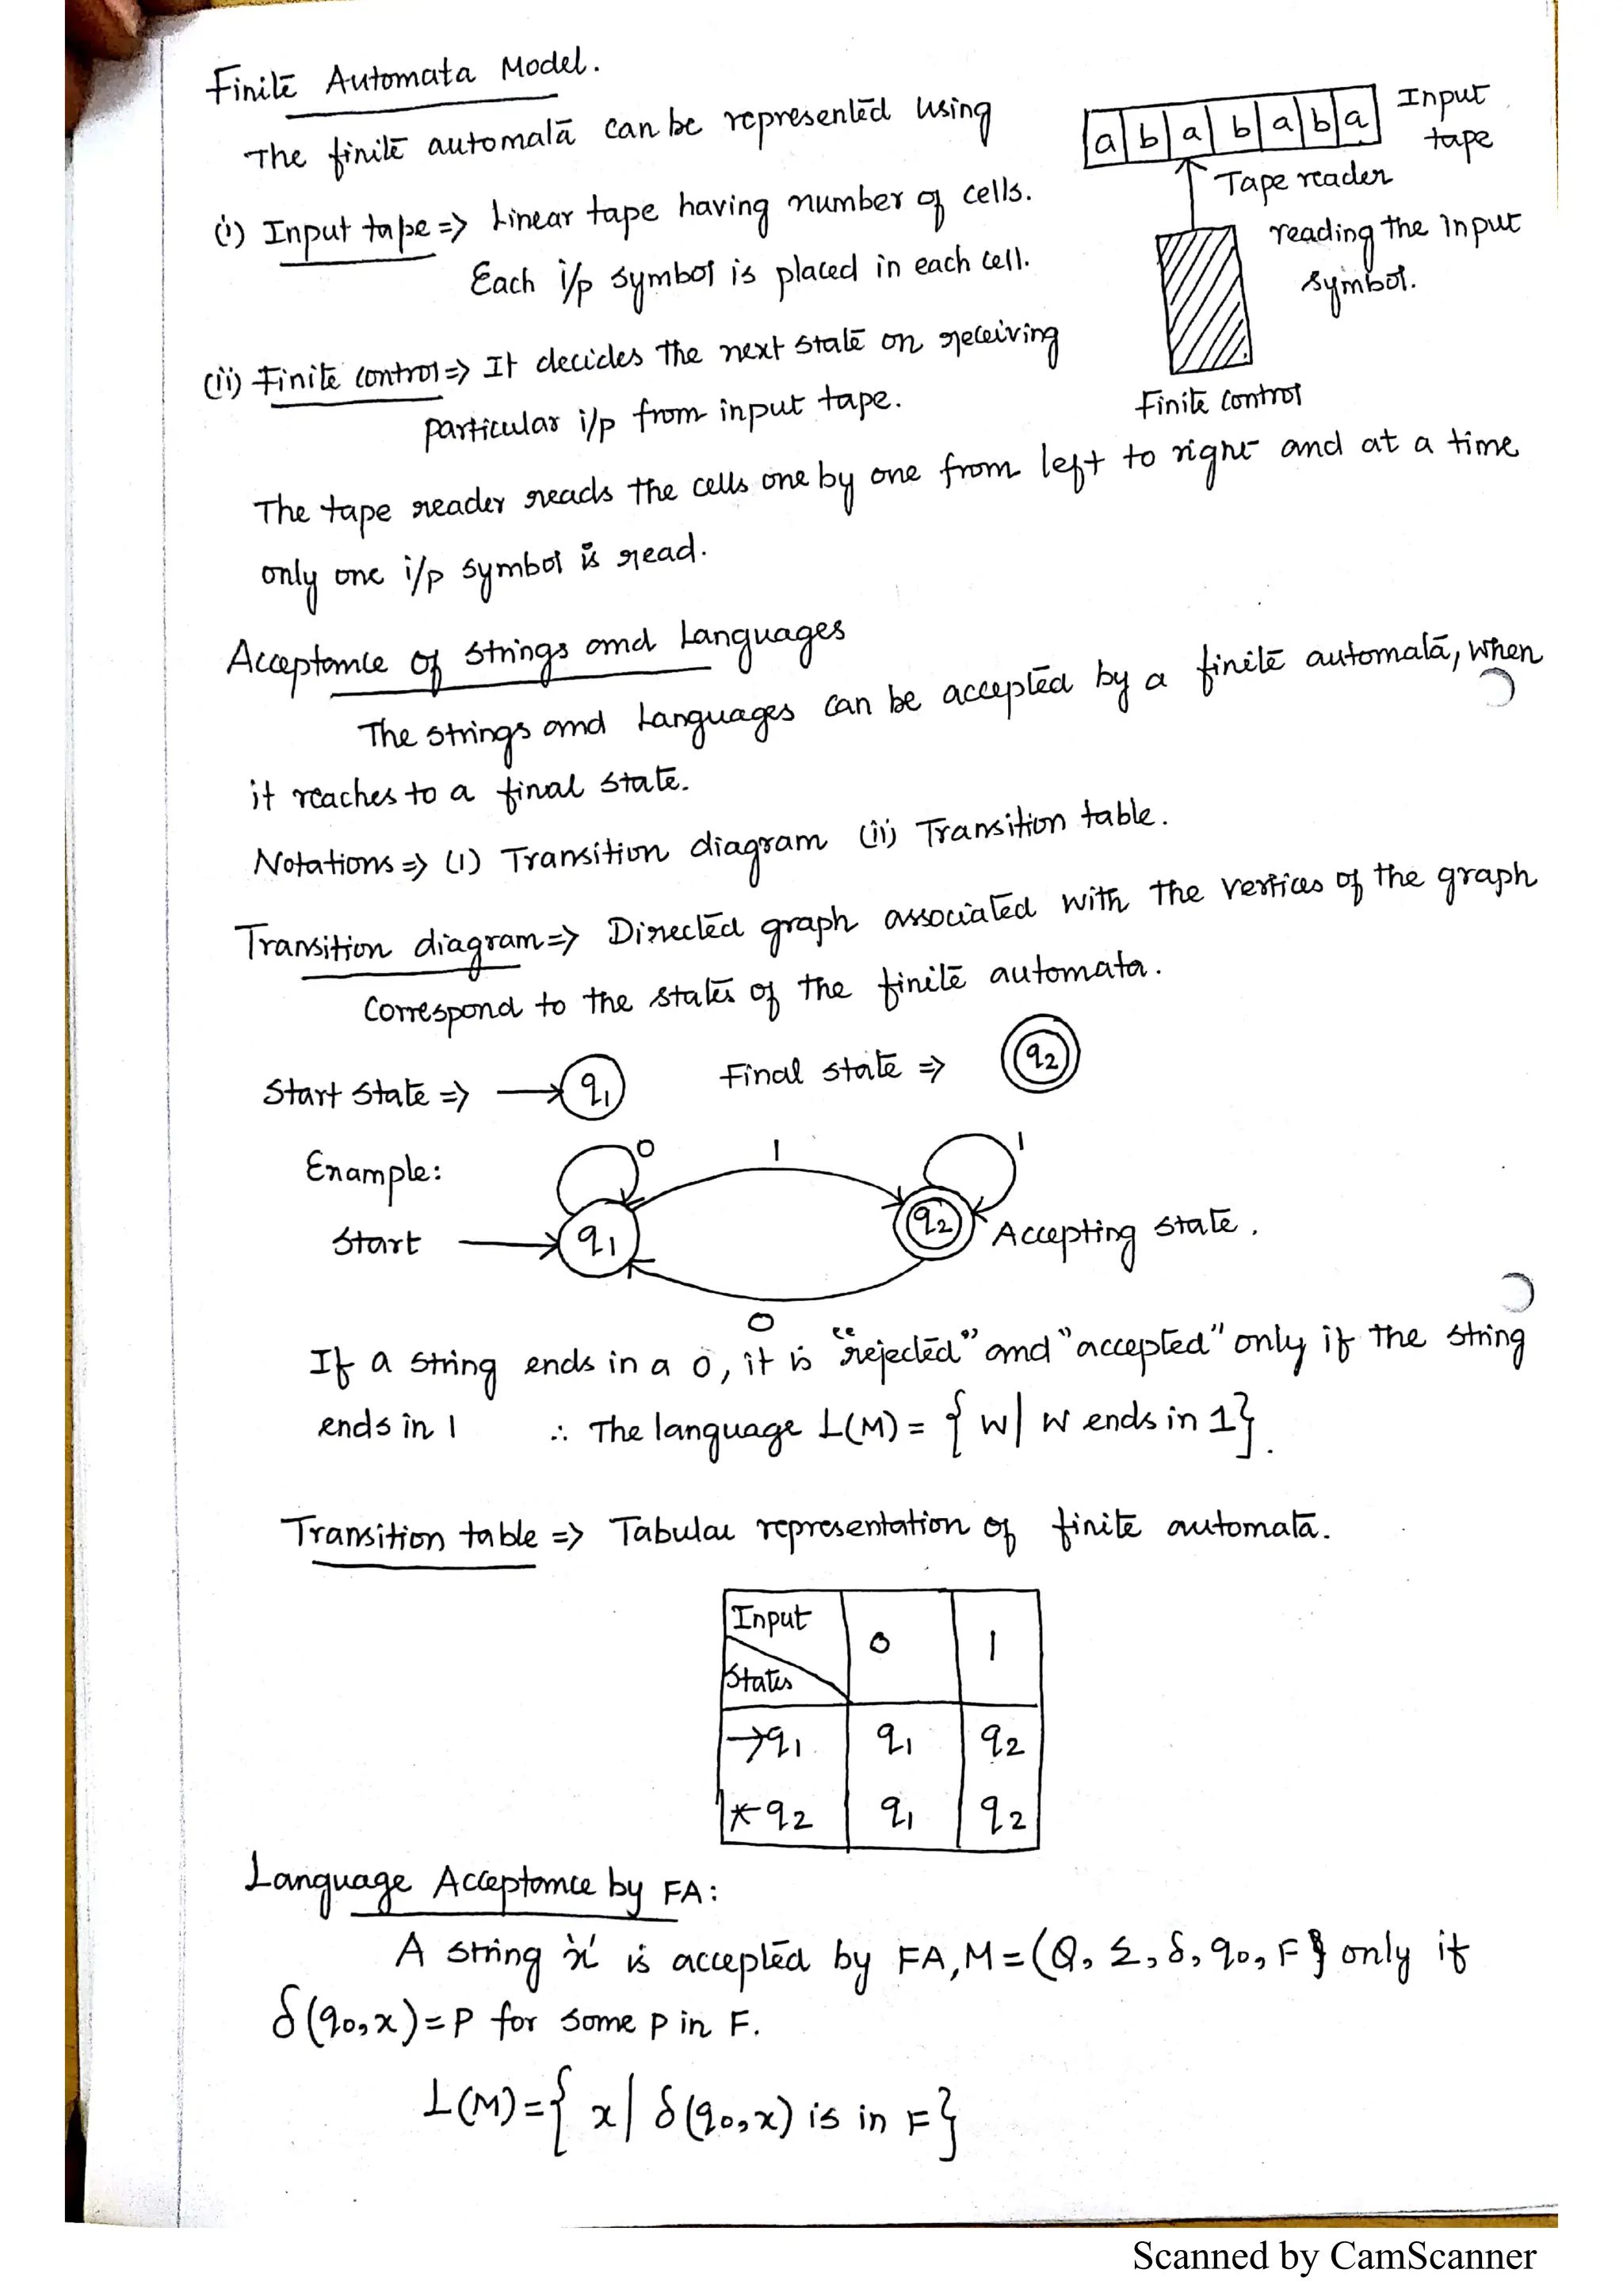 Finite Automata Model.
The finite automata can be represented using
(i) Input tape => Linear tape having number of cells.
Each i/p symbol is placed in each cell.
(ii) Finite control => It decides the next state on receiving
particular i/p from input tape.
a b a b a b a Input
tape
Tape reader
reading the input
symbol.
Finite control
The tape reader reads the cells one by one from left to right and at a time
only one i/p symbol is read.
Acceptance of Strings and Languages
The strings and Languages can be accepted by a finite automata, when
it reaches to a final state.
Notations => (1) Transition diagram (ii) Transition table.
Transition diagram => Directed graph associated with the vertices of the graph
Correspond to the states of the finite automata.
Start state => q1 Final state => q2
Example:
0 1 1
Start q1 q2 Accepting state.
0
If a string ends in a 0, it is "rejected" and "accepted" only if the string
ends in 1 ∴ The language L(M) = { W | W ends in 1}.
Transition table => Tabular representation of finite automata.
Input 0 1
States
→q1 q1 q2
*q2 q1 q2
Language Acceptance by FA:
A string 'x' is accepted by FA, M = (Q, Σ, δ, q0, F} only if
δ(q0, x) = P for some P in F.
L(M) = { x | δ(q0, x) is in F}
Scanned by CamScanner